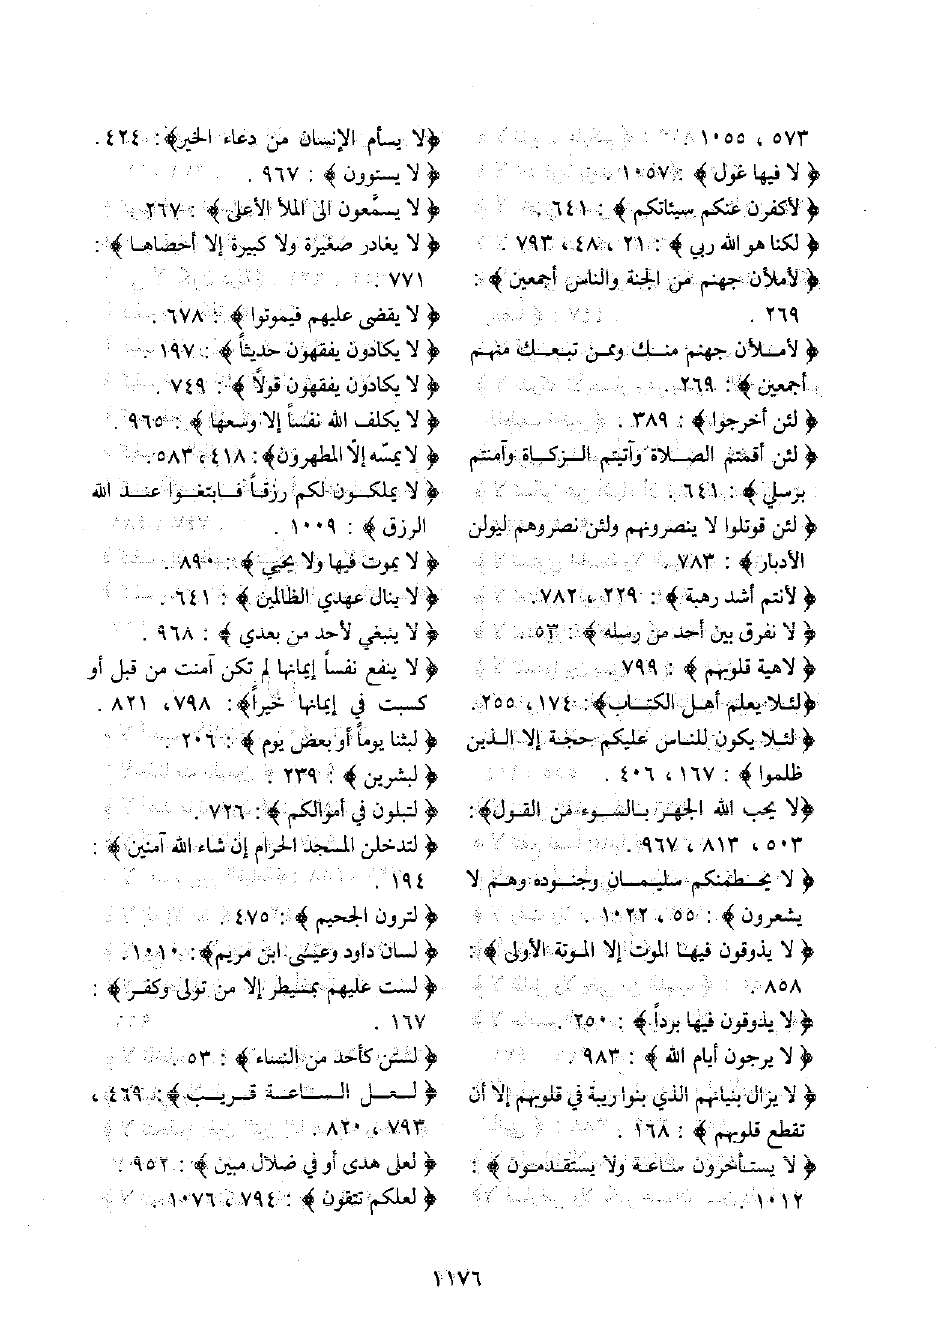 ٥٧٣ ، ١٠٥٥ .
﴿ لا فيها غول ﴾ : ١٠٥٧ .
﴿ لأكفرن عنكم سيئاتكم ﴾ : ٦٤١ .
﴿ لكنا هو الله ربي ﴾ : ٢١ ، ٤٨ ، ٧٩٣ .
﴿ لأملأن جهنم من الجنة والناس أجمعين ﴾ :
٢٦٩ .
﴿ لأمـلأن جهنم منـك وممن تبعـك منهم
أجمعين ﴾ : ٢٦٩ .
﴿ لئن أخرجوا ﴾ : ٣٨٩ .
﴿ لئن أقمتم الصـلاة وآتيتم الـزكـاة وآمنتم
برسلي ﴾ : ٦٤١ .
﴿ لئن قوتلوا لا ينصرونهم ولئن نصروهم ليولن
الأدبار ﴾ : ٧٨٣ .
﴿ لأنتم أشد رهبة ﴾ : ٢٢٩ ، ٧٨٢ .
﴿ لا نفرق بين أحد من رسله ﴾ : ٥٣ .
﴿ لاهية قلوبهم ﴾ : ٧٩٩ .
﴿لئـلا يعلم أهـل الكتـاب﴾ : ١٧٤ ، ٢٥٥ .
﴿ لئـلا يكون للناس عليكم حجـة إلا الـذين
ظلموا ﴾ : ١٦٧ ، ٤٠٦ .
﴿لا يحب الله الجهـر بـالسـوء من القـول﴾ :
٥٠٣ ، ٨١٣ ، ٩٦٧ .
﴿ لا يحـطمنكم سليمـان وجنـوده وهـم لا
يشعرون ﴾ : ٥٥ ، ١٠٢٢ .
﴿ لا يذوقون فيهـا الموت إلا الموتة الأولى ﴾ :
٨٥٨ .
﴿ لا يذوقون فيها برداً ﴾ : ٢٥٠ .
﴿ لا يرجون أيام الله ﴾ : ٩٨٣ .
﴿ لا يزال بنيانهم الذي بنوا ريبة في قلوبهم إلا أن
تقطع قلوبهم ﴾ : ١٦٨ .
﴿ لا يستـأخرون سـاعـة ولا يستقـدمـون ﴾ :
١٠١٢ .
﴿لا يسأم الإنسان من دعاء الخير﴾ : ٤٢٤ .
﴿ لا يستوون ﴾ : ٩٦٧ .
﴿ لا يسمّعون الى الملأ الأعلى ﴾ : ٢٦٧ .
﴿ لا يغادر صغيرة ولا كبيرة إلا أحصاهـا ﴾ :
٧٧١ .
﴿ لا يقضى عليهم فيموتوا ﴾ : ٦٧٨ .
﴿ لا يكادون يفقهون حديثاً ﴾ : ١٩٧ .
﴿ لا يكادون يفقهون قولاً ﴾ : ٧٤٩ .
﴿ لا يكلف الله نفساً إلا وسعها ﴾ : ٩٦٥ .
﴿ لا يمسّه إلّا المطهرون﴾ : ٤١٨ ، ٥٨٣ .
﴿ لا يملكـون لكم رزقـاً فـابتغـوا عنـد الله
الرزق ﴾ : ١٠٠٩ .
﴿ لا يموت فيها ولا يحيي ﴾ : ٨٩٠ .
﴿ لا ينال عهدي الظالمين ﴾ : ٦٤١ .
﴿ لا ينبغي لأحد من بعدي ﴾ : ٩٦٨ .
﴿ لا ينفع نفساً إيمانها لم تكن آمنت من قبل أو
كسبت في إيمانها خيراً﴾ : ٧٩٨ ، ٨٢١ .
﴿ لبثنا يوماً أو بعض يوم ﴾ : ٢٠٦ .
﴿ لبشرين ﴾ : ٢٣٩ .
﴿ لتبلون في أموالكم ﴾ : ٧٢٦ .
﴿ لتدخلن المسجد الحرام إن شاء الله آمنين ﴾ :
١٩٤ .
﴿ لترون الجحيم ﴾ : ٤٧٥ .
﴿ لسان داود وعيسى ابن مريم﴾ : ١٠١٠ .
﴿ لست عليهم بمسيطر إلا من تولى وكفـر ﴾ :
١٦٧ .
﴿ لستن كأحد من النساء ﴾ : ٥٣ .
﴿ لـعـل السـاعـة قـريـب ﴾ : ٤٦٩ ،
٧٩٣ ، ٨٢٠ .
﴿ لعلى هدى أو في ضلال مبين ﴾ : ٩٥٢ .
﴿ لعلكم تتقون ﴾ : ٧٩٤ ، ١٠٧٦ .
١١٧٦